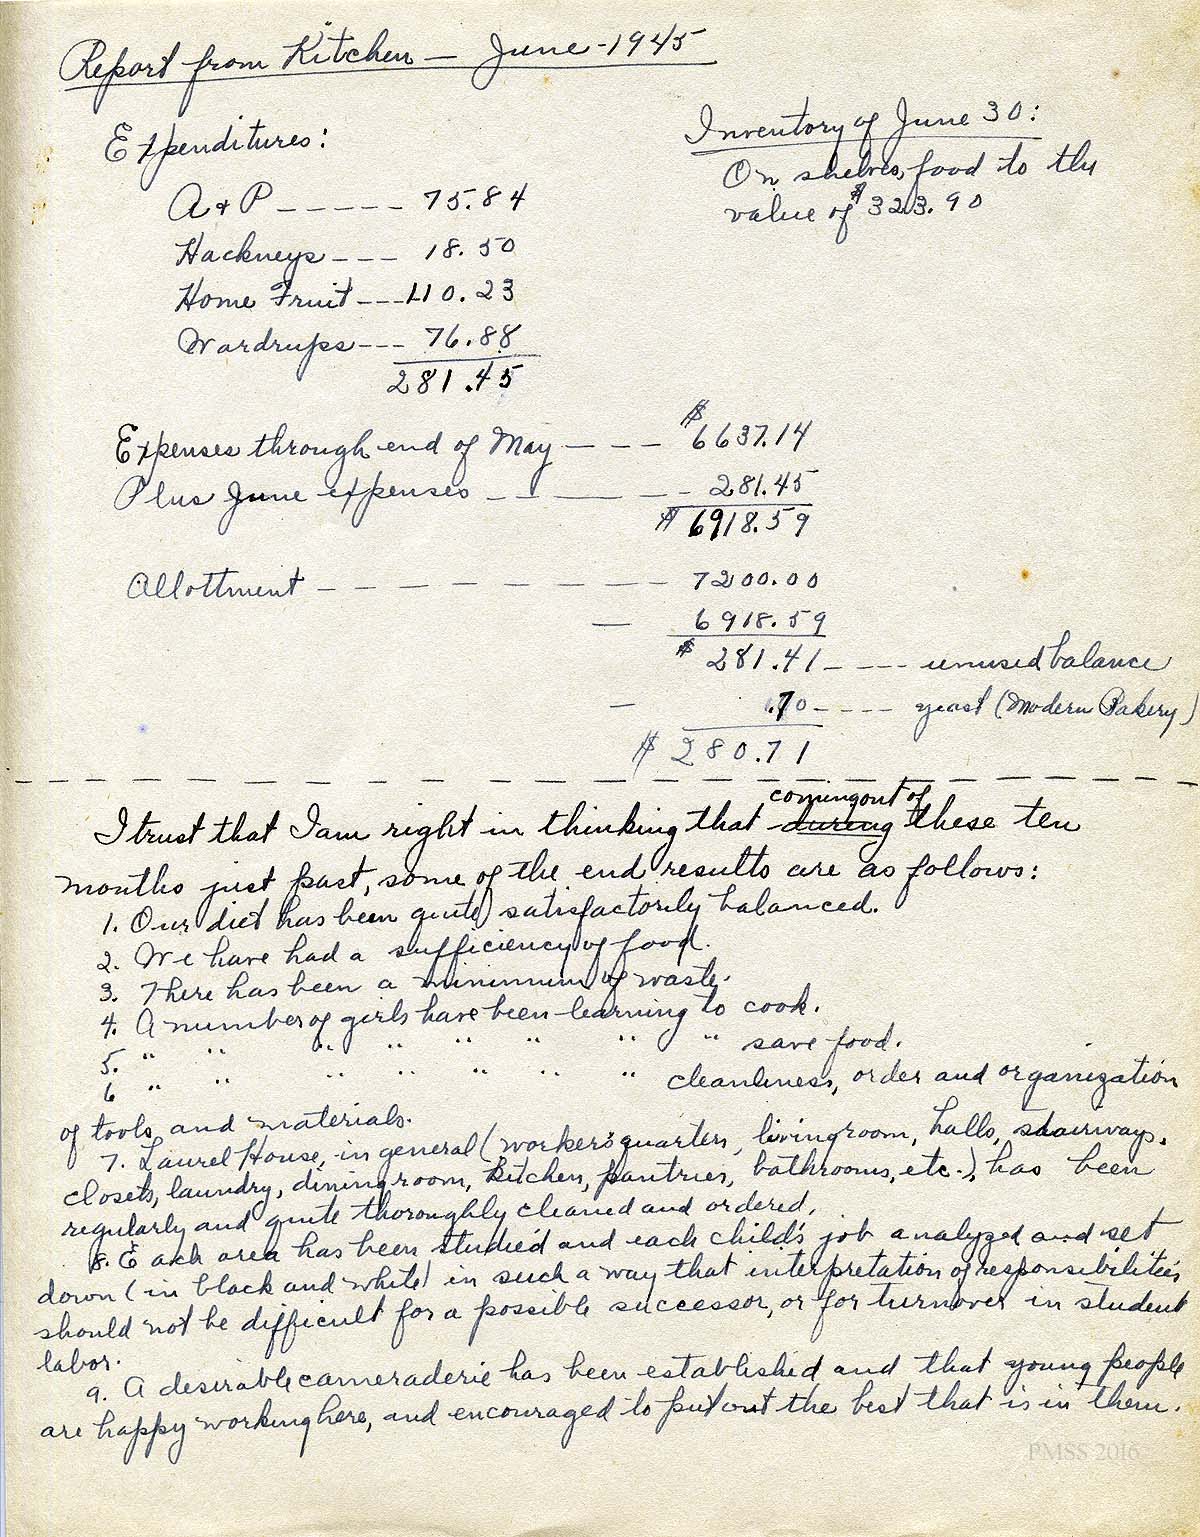 Report from Kitchen — June - 1945
Expenditures:
A & P ----- 75.84
Hackneys --- 18.50
Home Fruit --- 110.23
Wardrups --- 76.88
281.45
Inventory of June 30:
On shelves, food to the
value of $323.90
Expenses through end of May --- $6637.14
Plus June expenses ----- 281.45
$6918.59
Allottment -------- 7200.00
— 6918.59
$281.41 ---- unused balance
— .70 ---- yeast (Modern Bakery)
$280.71
I trust that I am right in thinking that ~~during~~ coming out of these ten
months just past, some of the end results are as follows:
1. Our diet has been quite satisfactorily balanced.
2. We have had a sufficiency of food.
3. There has been a minimum of waste.
4. A number of girls have been learning to cook.
5. " " " " " " " " save food.
6 " " " " " " " cleanliness, order and organization
of tools and materials.
7. Laurel House, in general (workers' quarters, livingroom, halls, stairways,
closets, laundry, diningroom, kitchen, pantries, bathrooms, etc.), has been
regularly and quite thoroughly cleaned and ordered.
8. Each area has been studied and each child's job analyzed and set
down (in black and white) in such a way that interpretation of responsibilities
should not be difficult for a possible successor, or for turnover in student
labor.
9. A desirable cameraderie has been established and that young people
are happy working here, and encouraged to put out the best that is in them.
PMSS 2016